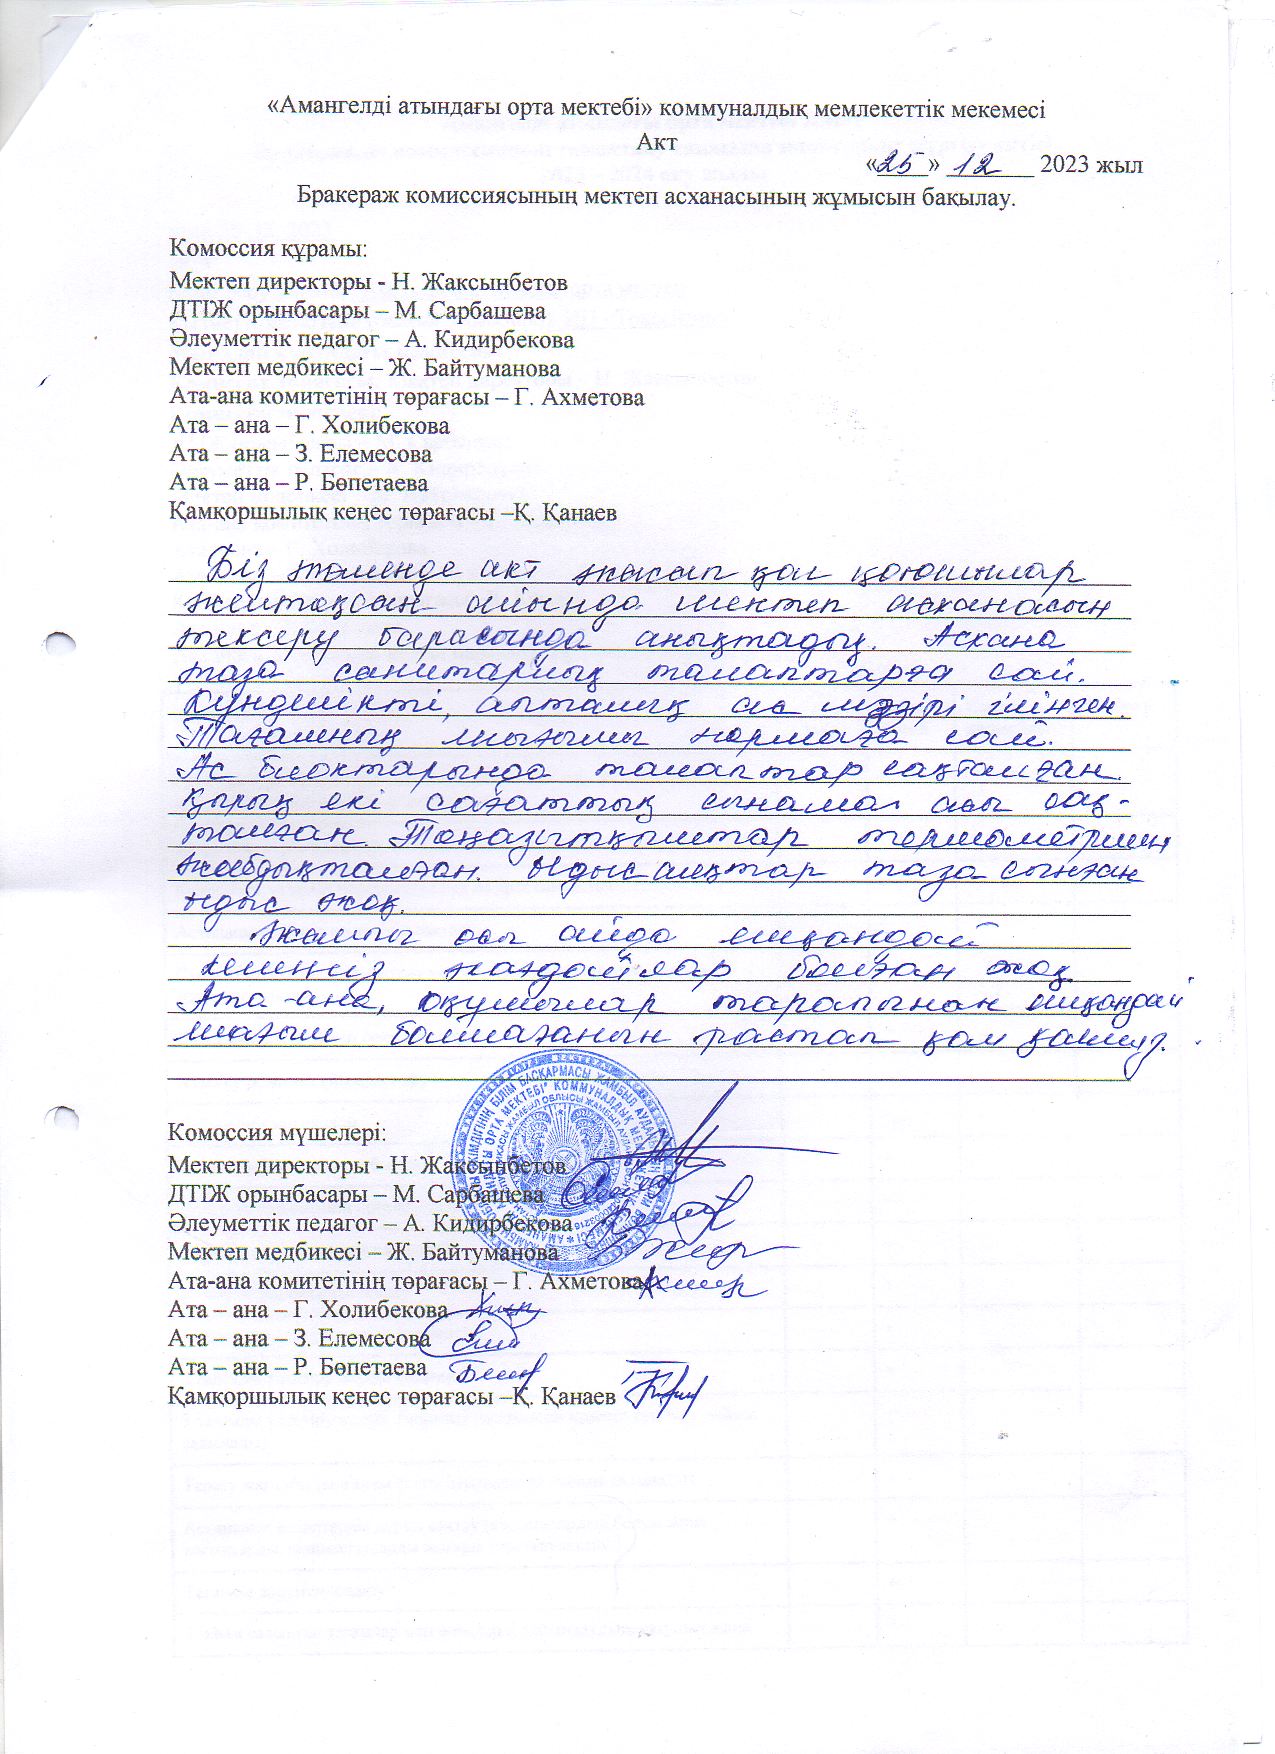 «Амангелді атындағы орта мектебі» коммуналдық мемлекеттік мекемесі
Акт
«25» 12 2023 жыл
Бракераж комиссиясының мектеп асханасының жұмысын бақылау.
Комоссия құрамы:
Мектеп директоры - Н. Жаксынбетов
ДТІЖ орынбасары – М. Сарбашева
Әлеуметтік педагог – А. Кидирбекова
Мектеп медбикесі – Ж. Байтуманова
Ата-ана комитетінің төрағасы – Г. Ахметова
Ата – ана – Г. Холибекова
Ата – ана – З. Елемесова
Ата – ана – Р. Бөпетаева
Қамқоршылық кеңес төрағасы –Қ. Қанаев
Біз төменде акт жасап қол қоюшылар
желтоқсан айында мектеп асханасын
тексеру барасында анықтадық. Асхана
таза санитарлық талаптарға сай.
Күнделікті, апталық ас мәзірі ілінген.
Тағамның шығымы нормаға сай.
Ас блоктарында талаптар сақталған.
Қырық екі сағаттық сынама асы сақ-
талған. Тоңазытқыштар термометрмен
жабдықталған. Ыдыс аяқтар таза сынған
ыдыс жоқ.
Жалпы осы айда ешқандай
келеңсіз жағдайлар болған жоқ.
Ата-ана, оқушылар тарапынан ешқандай
шағым болмағанын растап қол қоямыз.
Комоссия мүшелері:
Мектеп директоры - Н. Жаксынбетов
ДТІЖ орынбасары – М. Сарбашева
Әлеуметтік педагог – А. Кидирбекова
Мектеп медбикесі – Ж. Байтуманова
Ата-ана комитетінің төрағасы – Г. Ахметова
Ата – ана – Г. Холибекова
Ата – ана – З. Елемесова
Ата – ана – Р. Бөпетаева
Қамқоршылық кеңес төрағасы –Қ. Қанаев